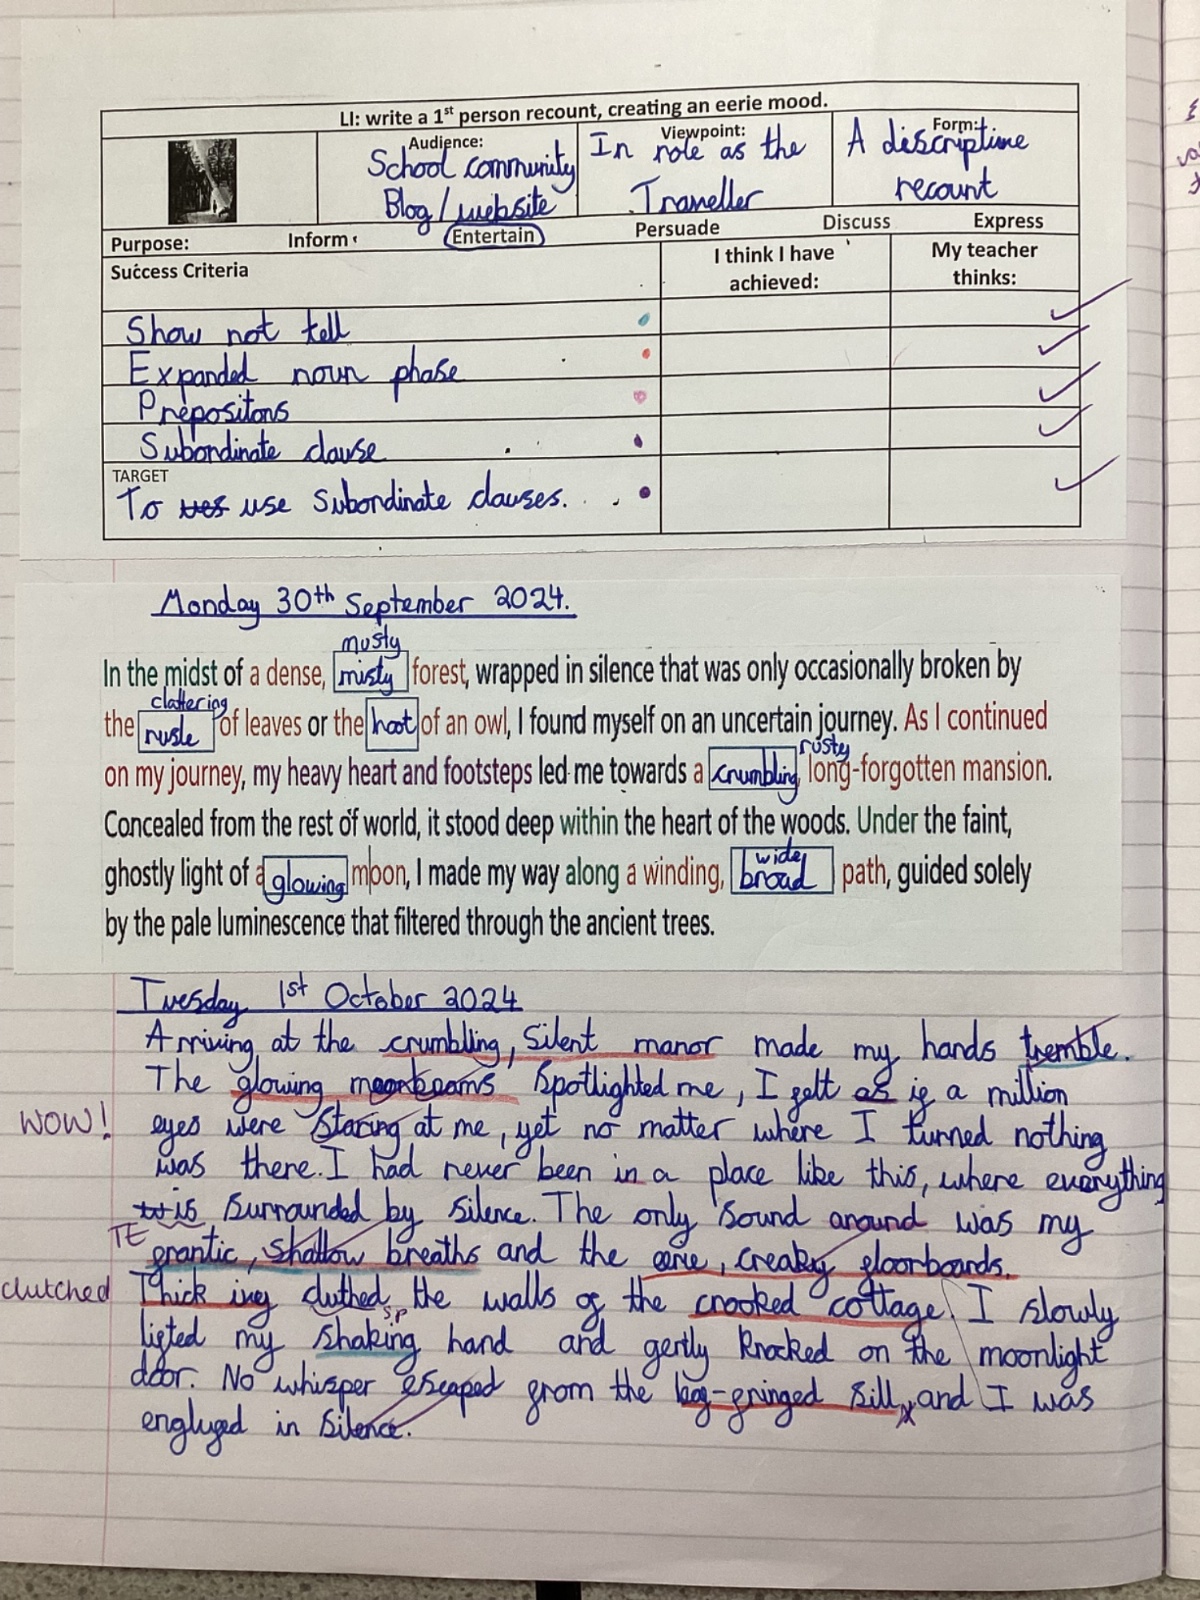 LI: write a 1st person recount, creating an eerie mood.
Audience: School community Blog/website
Viewpoint: In role as the Traveller
Form: A discriptive recount
Purpose: Inform Entertain Persuade Discuss Express
Success Criteria
I think I have achieved:
My teacher thinks:
Show not tell
Expanded noun phase
Prepositons
Subordinate clause
TARGET
To use Subordinate clauses.
Monday 30th September 2024.
musty
In the midst of a dense, misty forest, wrapped in silence that was only occasionally broken by
clattering
the rusle of leaves or the hoot of an owl, I found myself on an uncertain journey. As I continued
rusty
on my journey, my heavy heart and footsteps led me towards a crumbling, long-forgotten mansion.
Concealed from the rest of world, it stood deep within the heart of the woods. Under the faint,
wide
ghostly light of a glowing moon, I made my way along a winding, broad path, guided solely
by the pale luminescence that filtered through the ancient trees.
Tuesday 1st October 2024
Arriving at the crumbling, silent manor made my hands tremble.
The glowing moonbeams spotlighted me, I felt as if a million
WOW! eyes were staring at me, yet no matter where I turned nothing
was there. I had never been in a place like this, where everything
is surrounded by silence. The only sound around was my
TE frantic, shallow breaths and the eerie, creaky floorboards.
clutched Thick ivy cluthed sp the walls of the crooked cottage. I slowly
lifted my shaking hand and gently knocked on the moonlight
door. No whisper escaped from the leg-fringed sill, and I was
englufed in silence.